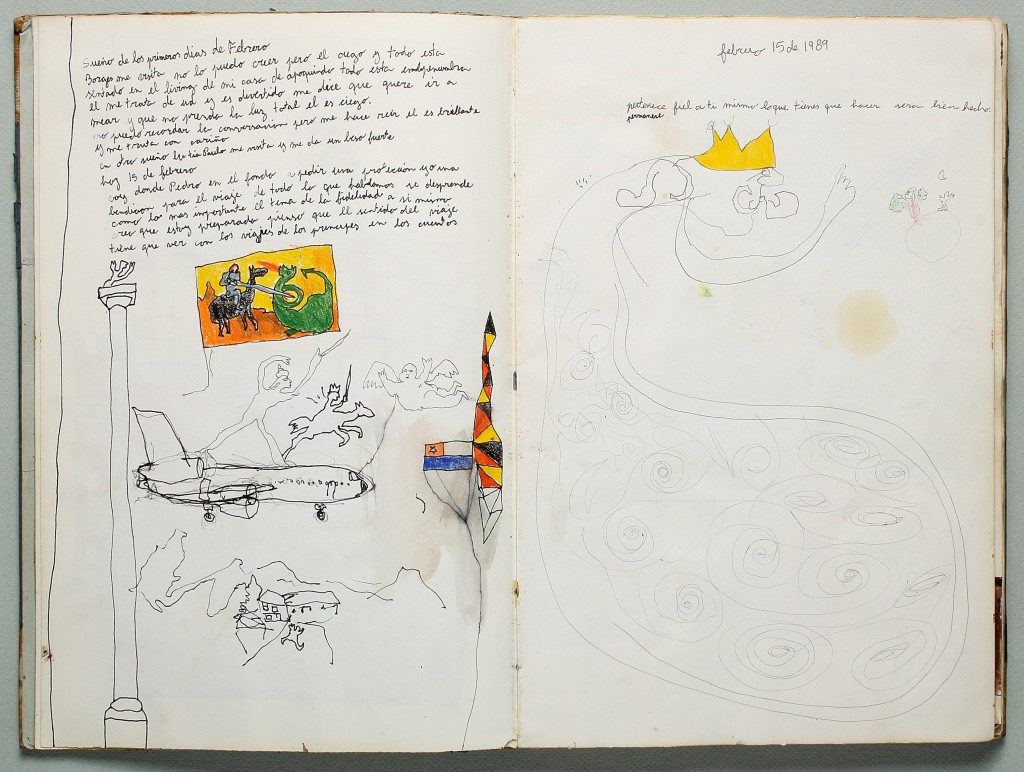 Sueño de los primeros dias de Febrero
Borges me visita no lo puedo creer pero el ciego y todo esta
sentado en el living de mi casa de apoquindo todo esta empenumbra
el me trata de ud y es divertido me dice que quere ir a
mear y que no prenda la luz total el es ciego.
no puedo recordar la conversación pero me hace reir el es brillante
y me trata con cariño
en otro sueño la tia Paula me visita y me da un beso fuerte
hoy 15 de febrero
voy donde Pedro en el fondo a pedir una protección y una
bendicion para el viaje de todo lo que hablamos se desprende
como lo mas importante el tema de la fidelidad a si mismo
creo que estoy preparada pienso que el sentido del viaje
tiene que ver con los viajes de los principes en los cuentos
febrero 15 de 1989
pertenece fiel a ti mismo lo que tienes que hacer sera bien hecho.
permanece